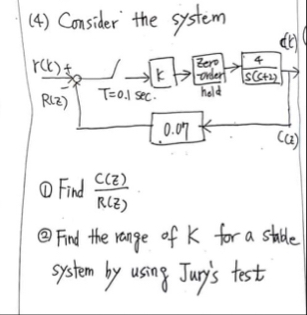 (4) Consider the system
c(t)
r(t) +
K
Zero
order
hold
4
S(S+2)
-
R(z)
T=0.1 sec.
0.07
C(z)
① Find C(z)
R(z)
② Find the range of K for a stable
system by using Jury's test